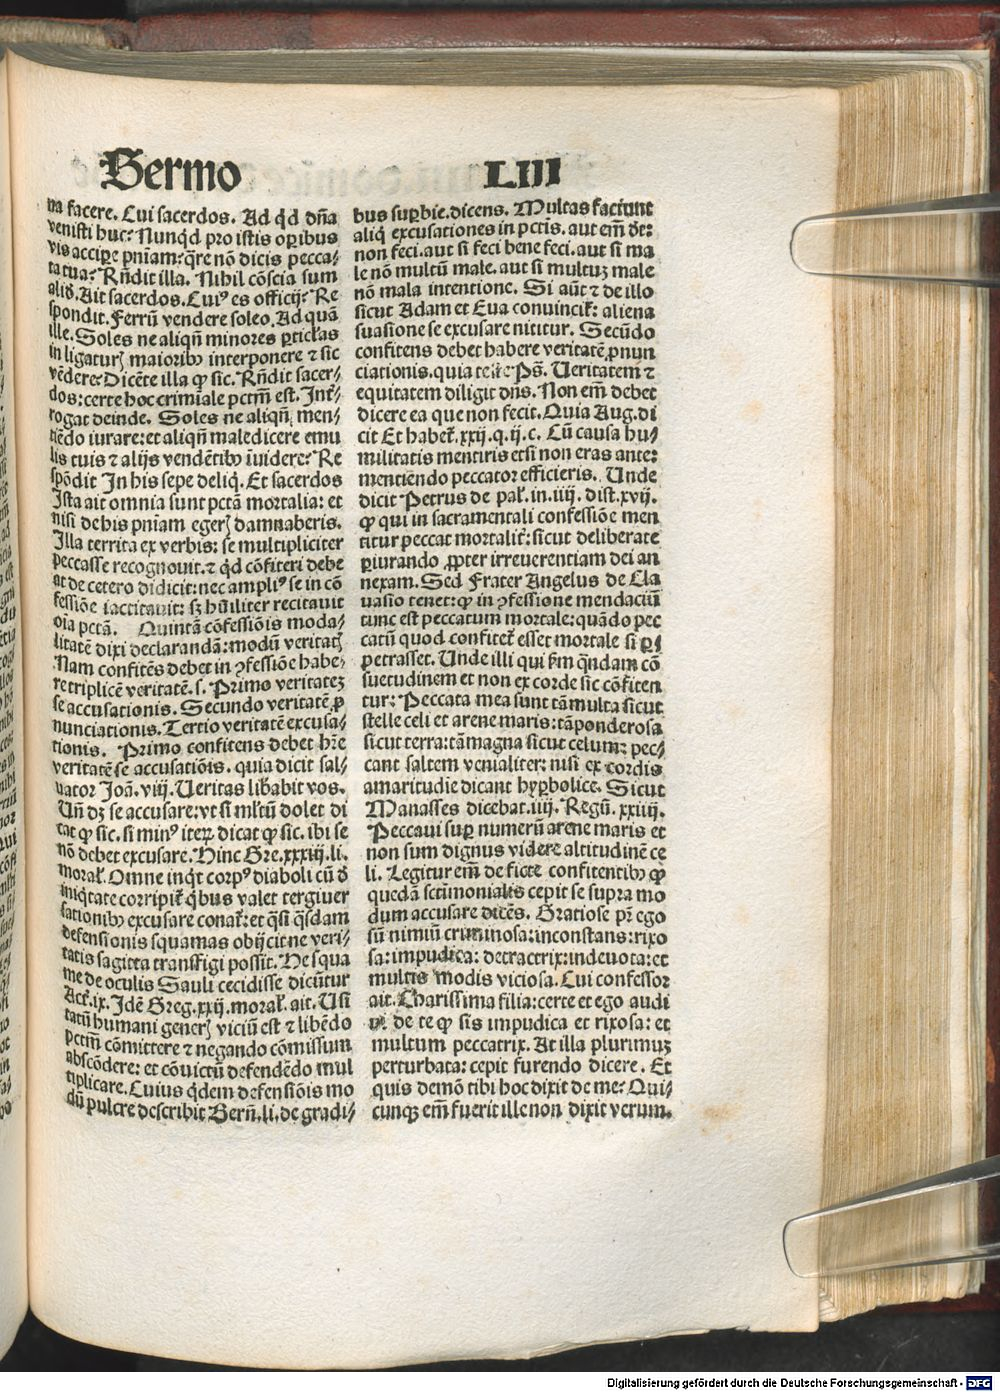 Sermo LIII
na facere. Cui sacerdos. Ad qd dña
venisti huc? Nunqd pro istis oꝑibus
vis acciꝑe pniam? q̃re nō dicis pecca-
ta tua? Rñdit illa. Nihil cōscia sum
aliq̃. Ait sacerdos. Cuiꝰ es officij? Re
spondit. Ferrū vendere soleo. Ad quā
ille. Soles ne aliqñ minores ꝑticl'as
in ligaturꝭ maioribꝰ interponere ⁊ sic
vēdere? Dicēte illa ꝙ sic. Rñdit sacer/
dos: certe hoc crimīale pctm̄ est. Int̄-
rogat deinde. Soles ne aliqñ men/
tiēdo iurare: et aliqñ maledicere emu
lis tuis ⁊ alijs vendētibꝰ īuidere? Re
spōdit In his sepe deliq̃. Et sacerdos
Ista ait omnia sunt pctā mortalia: et
nisi de his pniam egerꝭ damnaberis.
Illa territa ex verbis: se multipliciter
peccasse recognouit. ⁊ qd cōfiteri debe
at de cetero didicit: nec ampliꝰ se in cō
fessiōe iactitauit: sꝫ hūiliter recitauit
oīa pctā. Quintā cōfessiōis moda/
litatē dixi declarandā: modū veritatꝭ
Nam confitēs debet in ꝯfessiōe habe-
re triplicē veritatē. s. Primo veritateꝫ
se accusationis. Secundo veritatē ꝓ
nunciationis. Tertio veritatē excusa/
tionis. Primo confitens debet hr̄e
veritatē se accusatiōis. quia dicit sal/
uator Joā. viij. Veritas lib̄abit vos.
Uñ dꝫ se accusare: vt si ml'tū dolet di
cat ꝙ sic. si minꝰ iteꝝ dicat ꝙ sic. ibi se
nō debet excusare. Hinc Gre. xxxiij. li.
moral'. Omne inq̇t corpꝰ diaboli cū d
iniq̇tate corripit̄ q̇bus valet tergiuer
sationibꝰ excusare conat̄: et q̃si q̃sdam
defensionis squamas obijcit ne veri/
tatis sagitta transfigi possit. De squa
me de oculis Sauli cecidisse dicūtur
Act'. ix. Idē Greg. xxij. moral'. ait. Usi
tatū humani generꝭ viciū est ⁊ libēdo
pctm̄ cōmittere ⁊ negando cōmissum
abscōdere: et cōuictū defendēdo mul
tiplicare. Cuius q̇dem defensiōis mo
dū pulcre describit Berñ. li. de gradi/
bus suꝑbie. dicens. Multas faciunt
aliq̇ excusationes in pctīs. aut em̄ dr̄:
non feci. aut si feci bene feci. aut si ma
le nō multū male. aut si multuꝫ male
nō mala intentione. Si aūt ⁊ de illo
sicut Adam et Eua conuincit̄: aliena
suasione se excusare nititur. Secūdo
confitens debet habere veritatē ꝓnun
ciationis. quia teste Ps. Veritatem ⁊
equitatem diligit dñs. Non em̄ debet
dicere ea que non fecit. Quia Aug. di
cit Et habet̄. xxij. q. ij. c. Cū causa hu/
militatis mentiris etsi non eras ante:
mentiēndo peccator efficieris. Unde
dicit Petrus de pal'. in. iiij. dist. xvij.
ꝙ qui in sacramentali confessiōe men
titur peccat mortalit̄: sicut deliberate
ꝑiurando ꝓpter irreuerentiam dei an
nexam. Sed Frater Angelus de Cla
uasio tenet: ꝙ in ꝯfessione mendaciū
tunc est peccatum mortale: quādo pec
catū quod confitet̄ esset mortale si ꝑ
petrasset. Unde illi qui fm̄ q̃ndam cō
suetudinem et non ex corde sic cōfiten
tur: Peccata mea sunt tā multa sicut
stelle celi et arene maris: tā ponderosa
sicut terra: tā magna sicut celum: pec/
cant saltem venialiter: nisi ex cordis
amaritudie dicant hyꝑbolice. Sicut
Manasses dicebat. iiij. Regū. xxiiij.
Peccaui suꝑ numerū arene maris et
non sum dignus videre altitudinē ce
li. Legitur em̄ de ficte confitentibꝰ ꝙ
quedā sctīmonialis cepit se supra mo
dum accusare dicēs. Gratiose pr̄ ego
sū nimiū criminosa: inconstans: rixo
sa: impudica: detractrix: indeuota: et
multis modis viciosa. Cui confessor
ait. Charissima filia: certe et ego audi
ui de te ꝙ sis impudica et rixosa: et
multum peccatrix. At illa plurimuꝫ
perturbata: cepit furendo dicere. Et
quis demō tibi hoc dixit de me? Qui/
cunqꝫ em̄ fuerit ille non dixit verum.
Digitalisierung gefördert durch die Deutsche Forschungsgemeinschaft - DFG